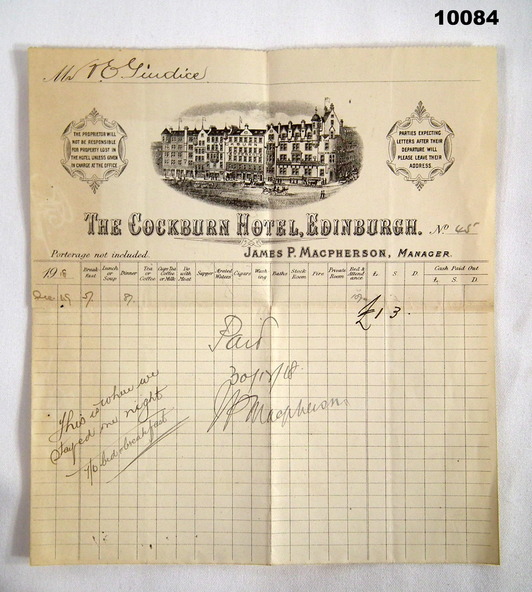 10084
Mr V E Giudice
THE PROPRIETOR WILL
NOT BE RESPONSIBLE
FOR PROPERTY LOST IN
THE HOTEL UNLESS GIVEN
IN CHARGE AT THE OFFICE.
PARTIES EXPECTING
LETTERS AFTER THEIR
DEPARTURE WILL
PLEASE LEAVE THEIR
ADDRESS.
THE COCKBURN HOTEL, EDINBURGH. No 45
Porterage not included. JAMES P. MACPHERSON, MANAGER.
19 Break-fast Lunch or Soup Dinner Tea or Coffee Cup Tea Coffee or Milk Do with Meat Supper Aerated Waters Cigars Wash-ing Baths Stock Room Fire Private Room Bed & Attend-ance £ S D. Cash Paid Out
L. S. D.
Dec 29 3/ 8/ £1 3.
Paid
30/12/18
J P Macpherson
This is where we
stayed one night
bed & breakfast